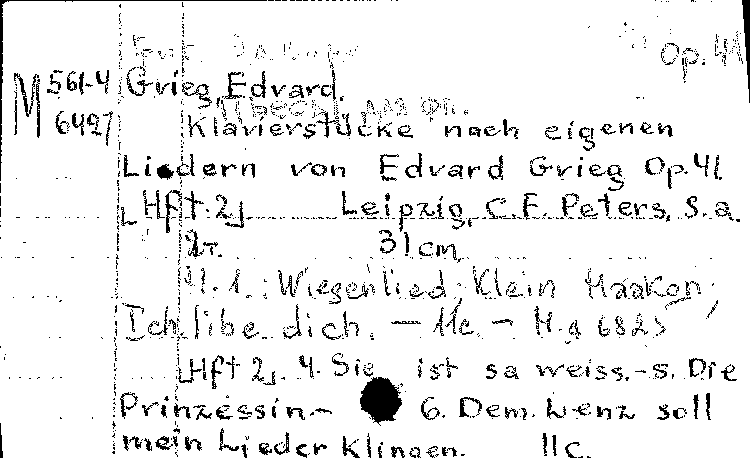 Op. 41
М 561-4 Grieg Edvard.
6427 Пьесы для фп.
Klavierstücke nach eigenen
Liedern von Edvard Grieg Op. 41
[Hft. 2] Leipzig, C. F. Peters, s. a.
2т. 31 cm
1. : Wiegenlied; Klein Haakon;
Ich libe dich. — 11c. —
[Hft 2]. 4. Sie ist sa weiss. - 5. Die
Prinzessin. - 6. Dem Lenz soll
mein Lieder Klingen. 11c.